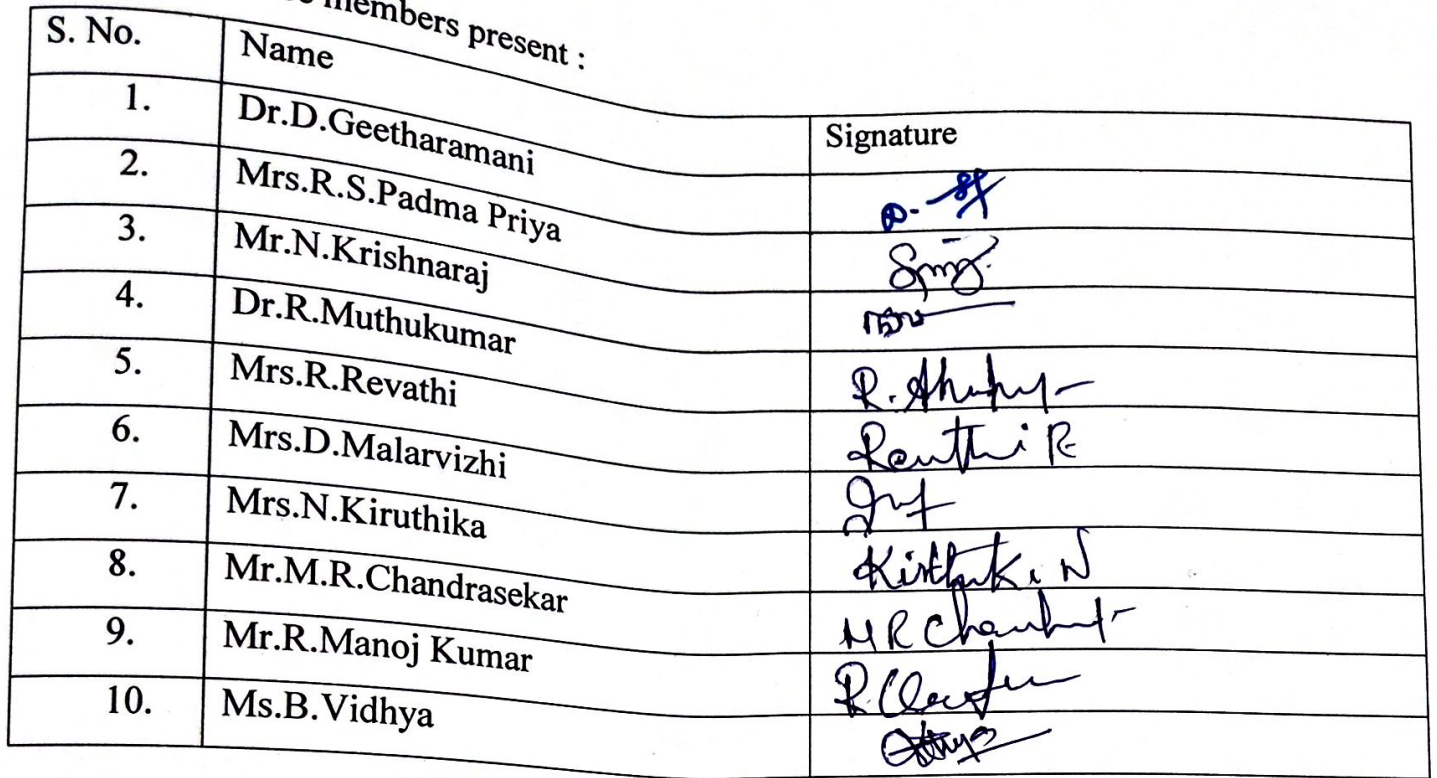 members present :
S. No. Name Signature
1. Dr.D.Geetharamani
2. Mrs.R.S.Padma Priya
3. Mr.N.Krishnaraj
4. Dr.R.Muthukumar
5. Mrs.R.Revathi Revathi R
6. Mrs.D.Malarvizhi
7. Mrs.N.Kiruthika
8. Mr.M.R.Chandrasekar
9. Mr.R.Manoj Kumar
10. Ms.B.Vidhya